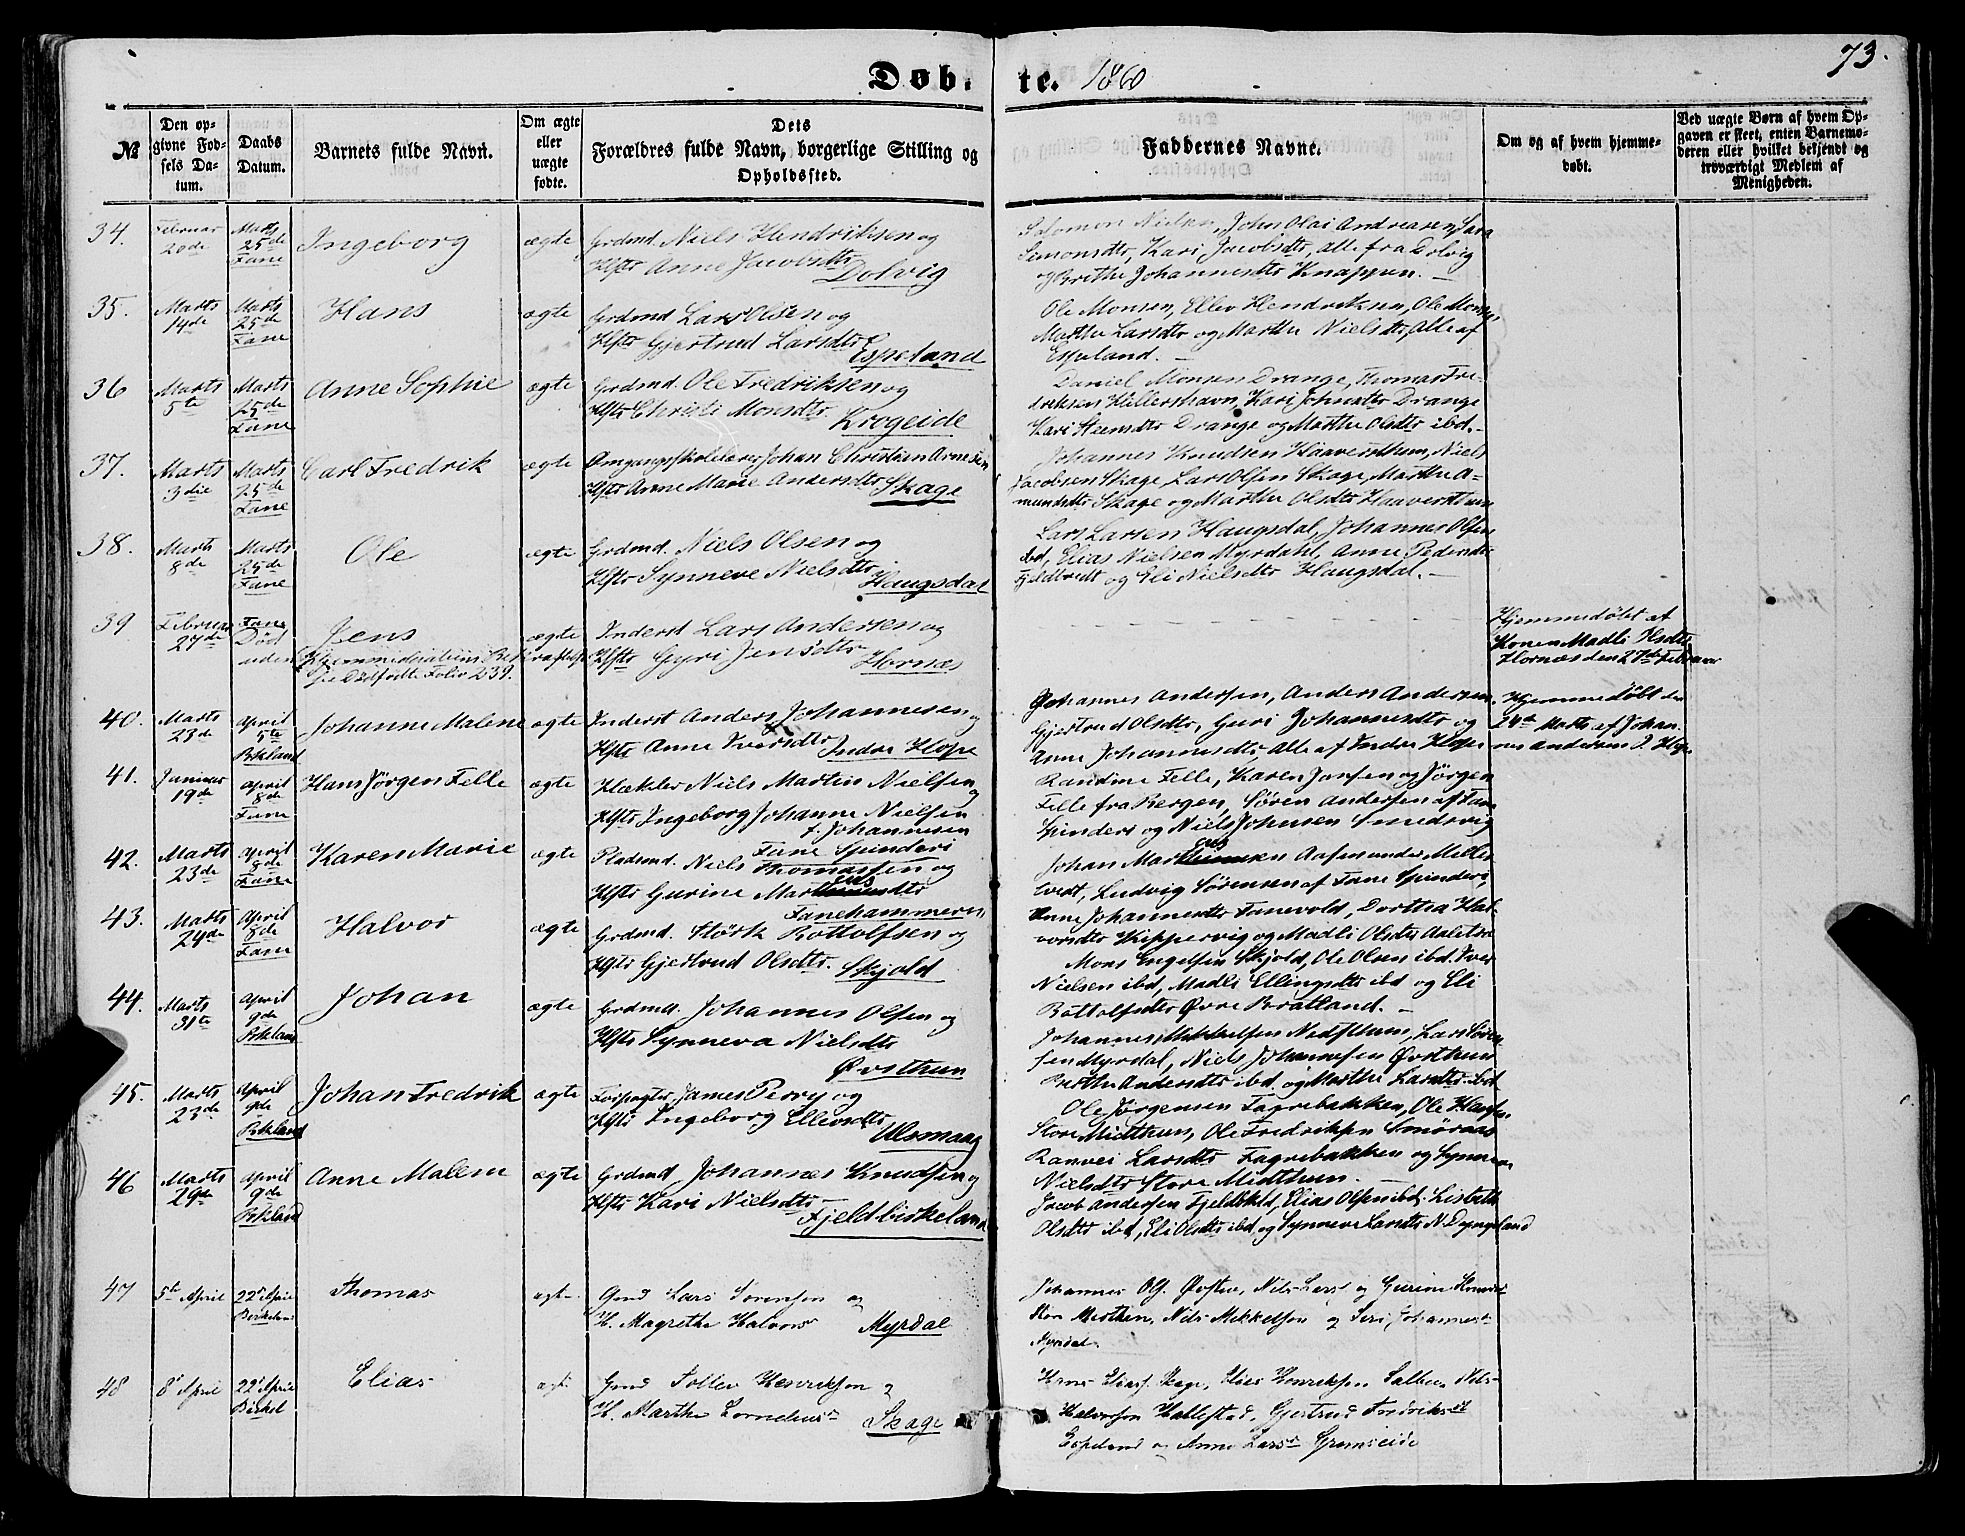 Døb.te. 1860
73.
№
Den opgivne Fødsels Datum.
Daabs Datum.
Barnets fulde Navn.
Om ægte eller uægte fødte.
Dets Forældres fulde Navn, borgerlige Stilling og Opholdssted.
Faddernes Navne.
Om og af hvem hjemmedøbt.
Ved uægte Børn af hvem Opgaven er skeet, enten Barnemoderen eller hvilket bekjendt og troværdigt Medlem af Menigheden.
34. Februar 20de Marts 25de Fane Ingeborg ægte Grdmd. Niels Hendriksen og
Hstr Anne Jacobsdtr Dolvig
Solomon Nielsen, Johs Olai Andreasen, Sara
Simonsdtr, Kari Jacobsdtr, alle fra Dolvig
og Brithe Johannesdtr Knappen. —
35. Marts 14de Marts 25de Fane Hans ægte Grdmd Lars Olsen og
Hstr Gjertrud Larsdtr Espeland
Ole Monsen, Ellev Hendriksen, Ole Monsen
Marthe Larsdtr og Marthe Nielsdtr, Alle af
Espeland. —
36 Marts 5te Marts 25de Fane Anne Sophie ægte Grdmd. Ole Fredriksen og
Hstr Christi Monsdtr Krogeide
Daniel Monsen Drange, Thomas Fre-
driksen Hillershavn, Kari Johnsdtr Drange
Kari Steensdtr Drange og Marthe Olsdtr ibd. -
37. Marts 3die Marts 25de Fane Carl Fredrik ægte Omgangsskolelærer Johan Christian Arnesen
Hstr Anne Marie Andersdtr Skage
Johannes Knudsen Haaversthun, Niels
Jacobsen Skage, Lars Olsen Skage, Marthe A-
mundsdtr Skage og Marthe Olsdtr Haaversthun
38. Marts 8de Marts 25de Fane Ole ægte Grdmd. Niels Olsen og
Hstr Synneve Nielsdtr Haugsdal
Lars Larsen Haugsdal, Johannes Olsen
ibd, Elias Nielsen Myrdahl, Anne Pedersdtr
og Eli Nielsdtr Haugsdal. —
39 Februar 27de Fane Død uden Jens ægte Inderst Lars Andersen og
Hstr Gyri Jensdtr Hornæs
se Dødfødte Folio 239.
Hjemmedøbt af
Konen Madli Olsdtr
Hornæs den 27de Februar
40. Marts 23de April 5te Birkland Johanne Malene ægte Inderst Anders Johannesen og
Hstr Anne Iversdtr Indre Hope
Johannes Andersen, Anders Andersen
Gjertrud Olsdtr, Guri Johannesdtr og
Anne Johannesdtr, Alle af Indre Hope
Hjemmedøbt den
24de Marts af Johan-
nes Andersen I. Hope
41. Januar 19de April 8de Fane Hans Jörgen Felle ægte Hækler Niels Martin Nielsen og
Hstr Ingeborg Johanne Nielsen
f. Johannesen
Fane Spinderi
Randine Felle, Karen Jansen og Jörgen
Felle fra Bergen, Sören Andersen af Fane
Spinderi og Niels Johnsen Smedsvig
42. Marts 23de April 8de Fane Karen Marie ægte Pladsmd. Niels Thomassen og
Hstr Gurine
Fanehammeren
Ludvig Sörensen af Fane Spinderi,
Anne Johannesdtr Fanevold, Dorthea Hal-
vorsdtr Kippervig og Madli Olsdtr
43. Marts 24de April 8de Fane Halvor ægte Grdmd. Størk Bottolfsen og
Hstr Gjertrud Olsdtr. Skjold
Mons Engelsen Skjold, Ole Olsen ibd. Iver
Nielsen ibd, Madli Ellingsdtr ibd og Eli
Bottolfsdtr Øvre Bratland. —
44. Marts 31te April 9de Birkland Johan ægte Grdmd. Johannes Olsen og
Hstr Synneva Nielsdtr
Øvsthun
Johannes Mikkelsen Nedsthun, Lars Sören-
sen Myrdal, Niels Johannesen Øvsthun
Berthe Andersdtr ibd og Marthe Larsdtr ibd
45. Marts 23de April 9de Birkland Johan Fredrik ægte Forpagter James Perry og
Hstr Ingeborg Ellevsdtr
Ulsmaag
Ole Jørgensen Fagrebakken, Ole Hansen
Store Midthun, Ole Fredriksen Smöraas
Ranvei Larsdtr Fagrebakken og Synneva
Nielsdtr Store Midthun. —
46 Marts 29de April 9de Birkland Anne Malene ægte Grdmd. Johannes Knudsen og
Hstr Kari Nielsdtr
Fjeldbirkeland
Jacob Andersen Fjeldskld, Elias Olsen ibd. Lisbeth
Olsdtr ibd, Eli Olsdtr ibd og Synneve Larsdtr N. Dyngeland
47 5te April 22de April Birkeland Thomas ægte Grmd Lars Sörensen og
H. Magrethe Halvors Myrdal
Johannes Ols. Øvsthu, Nils Lars og Gurine
Store Midthun, Nils Mikkelsen og Siri Johannesdtr
Myrdal.
48 8de April 22de April Birkel Elias ægte Grmd Tollev Henriksen og
H. Marthe Cornelius Skage
Hans Eliass. Skage, Elias Henriksen Nils
Halvorsen Hallestad, Gjertrud Fredriksdtr
Espeland og Anne Larsdr Grimseide